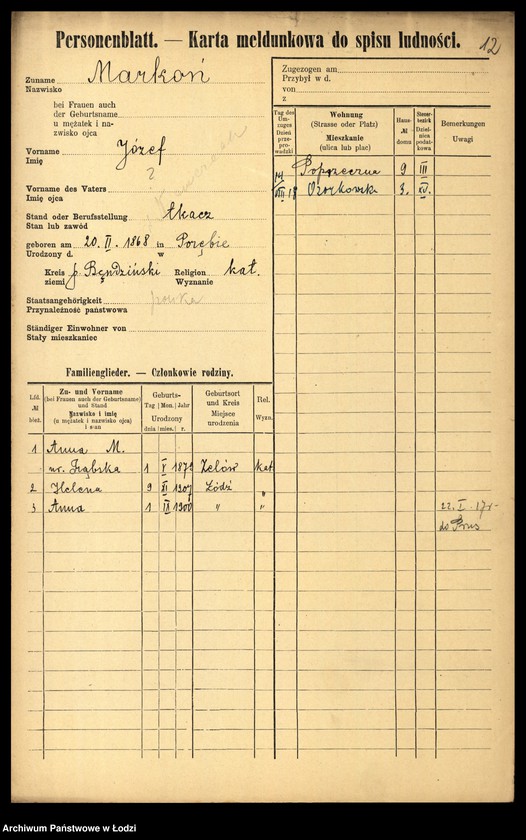 Personenblatt. — Karta meldunkowa do spisu ludności.
12
Zuname Markoń
Nazwisko
bei Frauen auch
der Geburtsname
u mężatek i na-
zwisko ojca
Vorname Józef
Imię
?
Vorname des Vaters
Imię ojca
Stand oder Berufsstellung tkacz
Stan lub zawód
geboren am 20. II. 1868 in Porębie
Urodzony d. w
Kreis p. Bendziński Religion kat.
ziemi Wyznanie
Staatsangehörigkeit
Przynależność państwowa
Ständiger Einwohner von
Stały mieszkaniec
Zugezogen am
Przybył w d.
von
z
Tag des Um-zuges Dzień przepro-wadzki
Wohnung (Strasse oder Platz) Mieszkanie (ulica lub plac)
Haus-№ domu
Steuer-bezirk Dziel-nica podat-kowa
Bemerkungen Uwagi
Poprzeczna 9 III
VIII 18 Ozorkowska 3. XV.
Familienglieder. — Członkowie rodziny.
Lfd. № bież.
Zu- und Vorname (bei Frauen auch der Geburtsname) und Stand Nazwisko i imię (u mężatek i nazwisko ojca) i stan
Geburts- Tag Mon. Jahr Urodzony dnia mies. r.
Geburtsort und Kreis Miejsce urodzenia
Rel. Wyzn.
1 Anna M.
ur. 1 V 1872 Zelów kat
2 Helena 9 XI 1907 Łódź "
3 Anna 1 IX 1900 " " 22. I. 17 r-
do Prus
Archiwum Państwowe w Łodzi